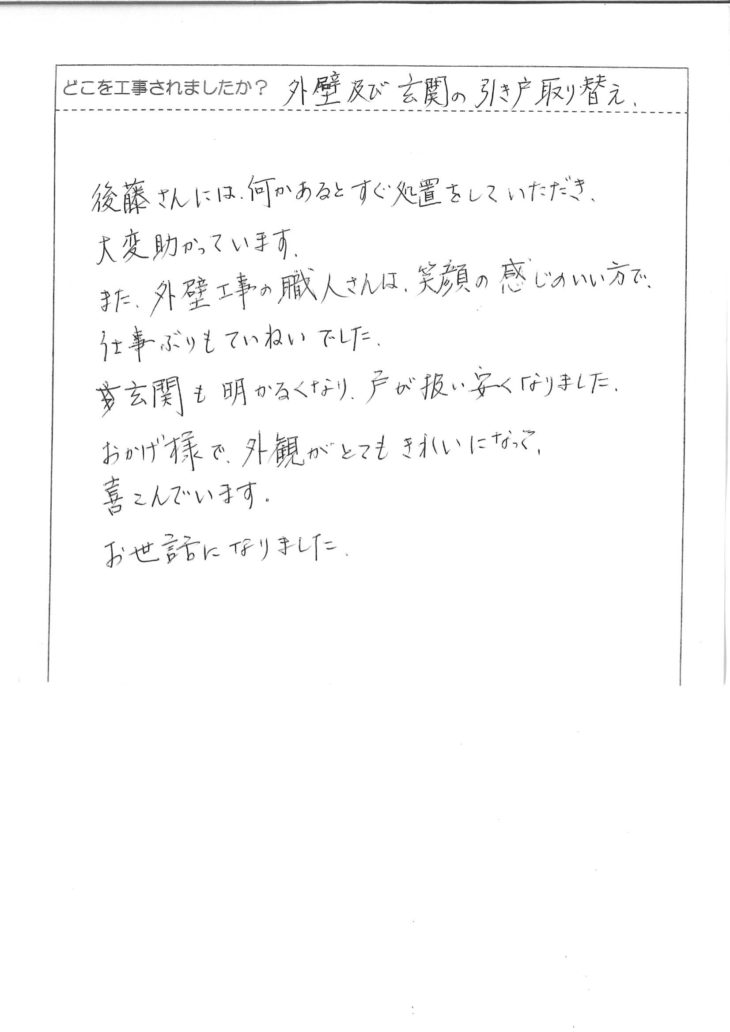 どこを工事されましたか? 外壁及び玄関の引き戸取り替え.
後藤さんには、何かあるとすぐ処置をしていただき、
大変助かっています.
また、外壁工事の職人さんは、笑顔の感じのいい方で、
仕事ぶりもていねいでした.
玄関も明かるくなり、戸が扱い安くなりました.
おかげ様で、外観がとてもきれいになって、
喜こんでいます.
お世話になりました.